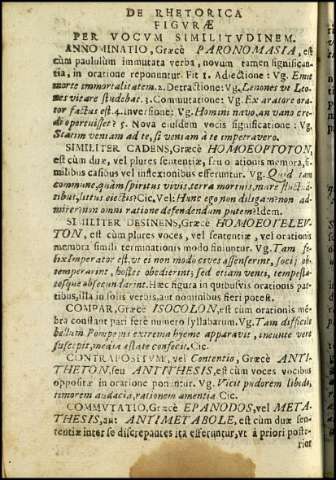 DE RHETORICA
FIGVRÆ
PER VOCVM SIMILITVDINEM.
ANNOMINATIO, Græcè PARONOMASIA, est
cùm paululùm immutata verba, novum tamen significan-
tia, in oratione reponuntur. Fit 1. Adiectione: Vg. Emit
morte immortalitatem. 2. Detractione: Vg. Lenones vt Leo-
nes vitare studebat. 3. Commutatione: Vg. Ex aratore ora-
tor factus est. 4. Inversione: Vg. Homini navo, an vano cre-
di oportuisset? 5. Nova eiusdem vocis significatione: Vg.
Statim veniam ad te, si veniam à te impetravero.
SIMILITER CADENS, Græcè HOMOEOPTOTON,
est cùm duæ, vel plures sententiæ, seu orationis membra, si-
milibus casibus vel inflexionibus efferuntur. Vg. Quid tam
commune, quàm spiritus vivis, terra mortuis, mare fluctu-
tibus, littus eiectis? Cic. Vel: Hunc ego non diligam? non ad-
mirer? non omni ratione defendendum putem? Idem.
SIMILITER DESINENS, Græcè HOMOEOTELEV-
TON, est cùm plures voces, vel sententiæ, vel orationis
membra simili terminationis modo finiuntur. Vg. Tam fe-
lix Imperator est, vt ei non modò cives assenserint, socij ob-
temperarint, hostes obedierint; sed etiam venti, tempesta-
tesque obsecundarint. Hæc figura in quibusvis orationis par-
tibus, illa in solis verbis, aut nominibus fieri potest.
COMPAR, Græcè ISOCOLON, est cùm orationis mem-
bra constant pari ferè numero syllabarum. Vg. Tam difficile
bellum Pompeius extrema hyeme apparavit, ineunte vere
suscepit, media æstate confecit. Cic.
CONTRAPOSITVM, vel Contentio, Græcè ANTI-
THETON, seu ANTITHESIS, est cùm voces vocibus
oppositæ in oratione ponuntur. Vg. Vicit pudorem libido,
timorem audacia, rationem amentia. Cic.
COMMVTATIO, Græcè EPANODOS, vel META-
THESIS, aut ANTIMETABOLE, est cùm duæ sen-
tentiæ inter se discrepantes ita efferuntur, vt à priori poste-
rior